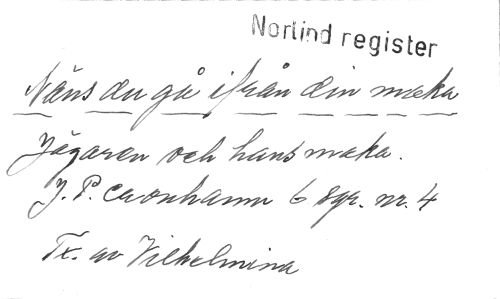 Norlind register
Näns du gå ifrån din maka
Jägaren och hans maka.
J. P. Cronhamn 6 sgr. nr. 4
Tx. av Vilhelmina